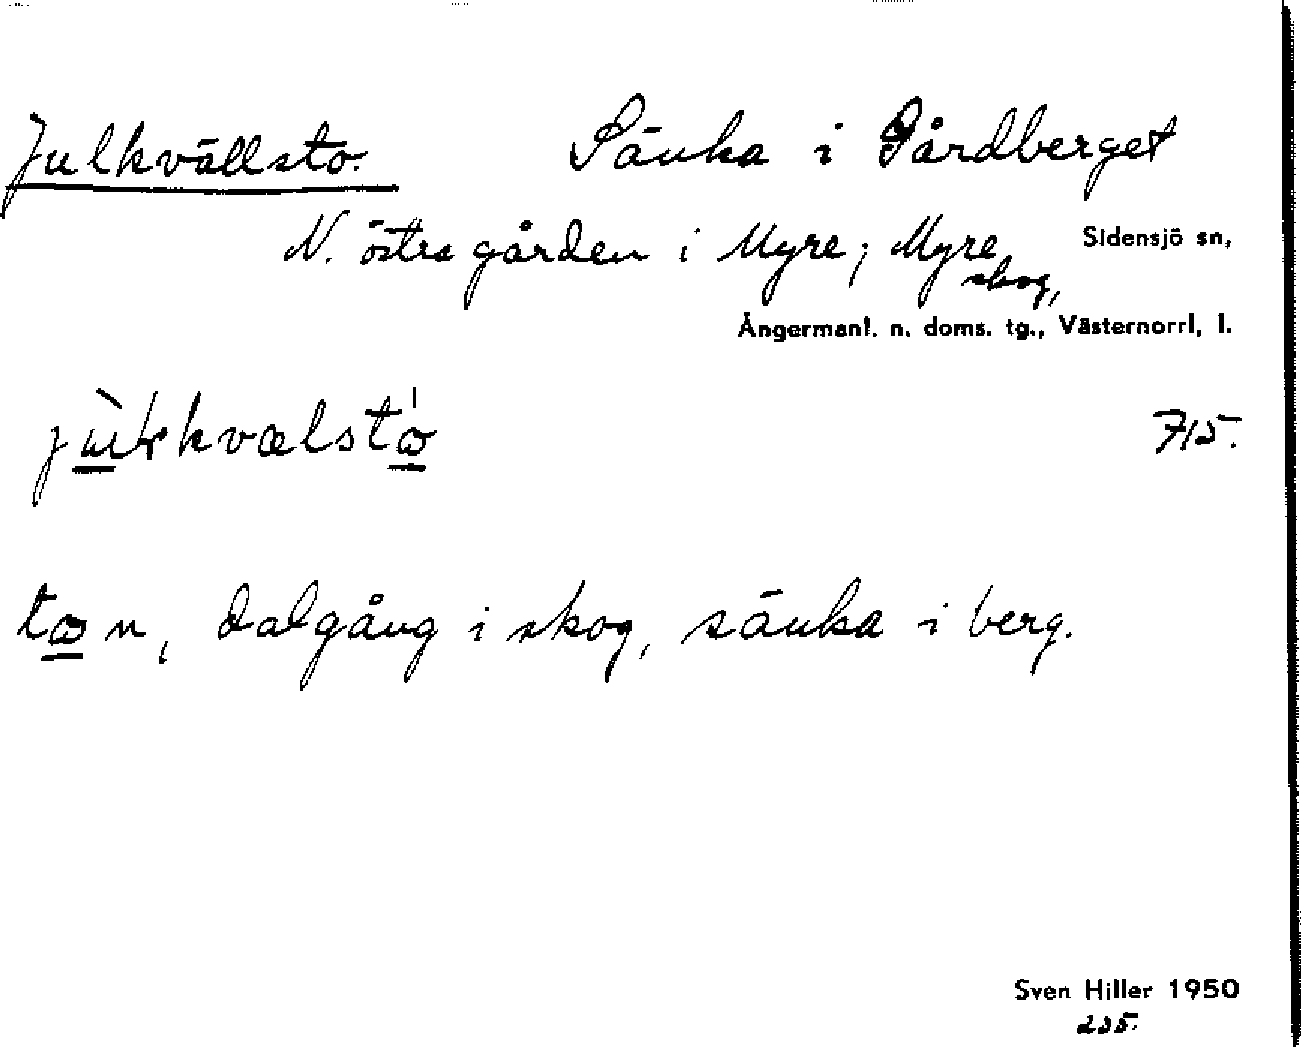 Julkvällsto. Sänka i Gårdberget
N. östra gården i Myre; Myre skog, Sidensjö sn,
Ångermanl. n. doms. tg., Västernorrl. l.
715.
to n, dalgång i skog, sänka i berg.
Sven Hiller 1950
235.